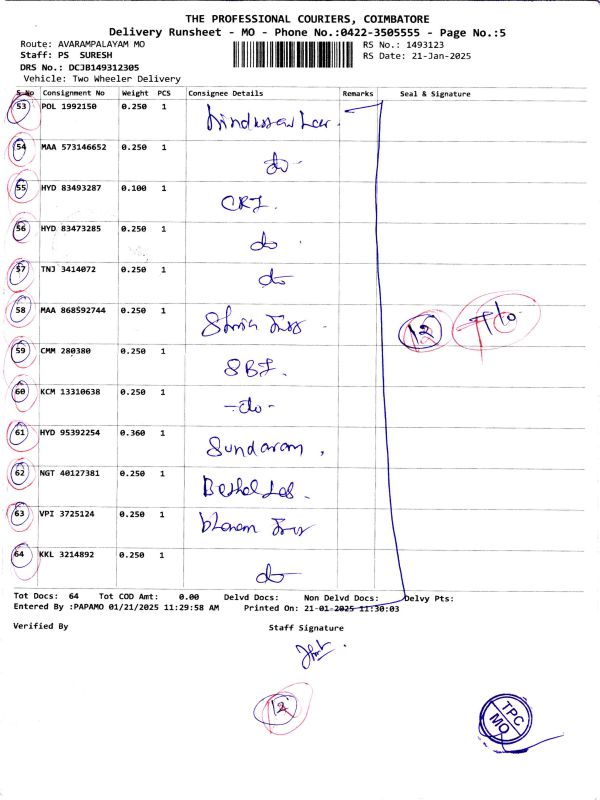 THE PROFESSIONAL COURIERS, COIMBATORE
Delivery Runsheet - MO - Phone No.:0422-3505555 - Page No.:5
Route: AVARAMPALAYAM MO RS No.: 1493123
Staff: PS SURESH RS Date: 21-Jan-2025
DRS No.: DCJB149312305
Vehicle: Two Wheeler Delivery
S No Consignment No Weight PCS Consignee Details Remarks Seal & Signature
53 POL 1992150 0.250 1
54 MAA 573146652 0.250 1 do
55 HYD 83493287 0.100 1 CRI.
56 HYD 83473285 0.250 1 do
57 TNJ 3414072 0.250 1 do
58 MAA 868592744 0.250 1
12
59 CMM 280380 0.250 1 SBI.
60 KCM 13310638 0.250 1 -do-
61 HYD 95392254 0.360 1 Sundaram
62 NGT 40127381 0.250 1
63 VPI 3725124 0.250 1
64 KKL 3214892 0.250 1 do
Tot Docs: 64 Tot COD Amt: 0.00 Delvd Docs: Non Delvd Docs: Delvy Pts:
Entered By :PAPAMO 01/21/2025 11:29:58 AM Printed On: 21-01-2025 11:30:03
Verified By Staff Signature
12
TPC
MO